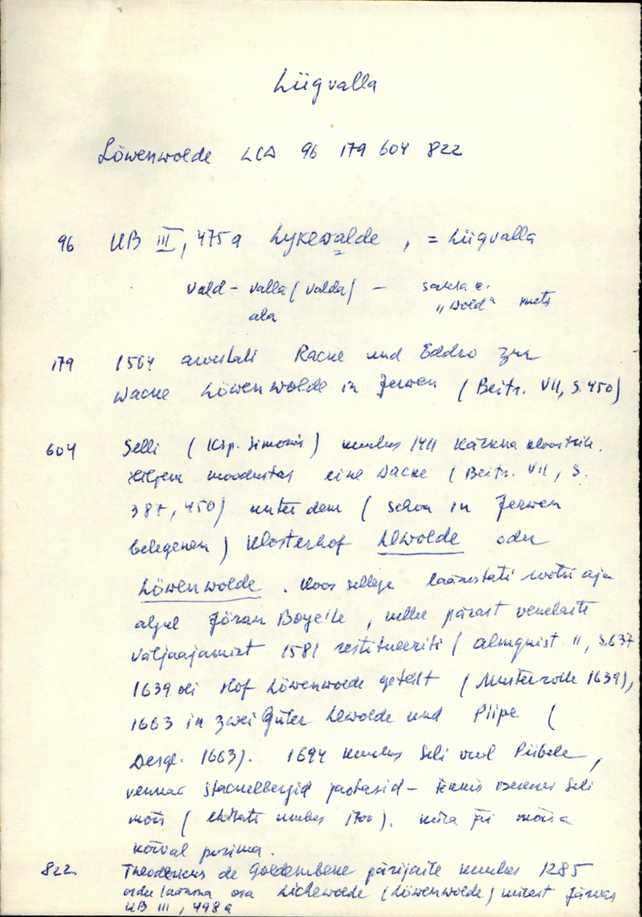 Liigvalla
Löwenwolde LCD 96 179 604 822
96 UB III, 475a Lykewalde, = Liigvalla
vald - valla (valda) - saksa k.
ala "wold" mets
179 1564 arvestati Racke und Eddro zur
Wacke Löwenwolde in Jerwen (Beitr. VII, S. 450)
604 Selli (Ksp. Simonis) kuulus 1411 Kärkna kloostrile.
Hiljem moodustas eine Wacke (Beitr. VII, S.
387, 450) unter dem (schon in Jerwen
belegenen) Klosterhof Lewolde oder
Löwenwolde. Koos sellega läänistati rootsi aja
algul Jöran Boye'le, kelle pärast venelaste
väljaajamist 1581 restitueeriti (Almquist II, S. 637
1639 oli Hof Löwenwolde geteilt (Musterrolle 1639),
1663 in zwei Güter Lewolde und Piipe (
Desgl. 1663). 1694 kuulus Seli veel Piibele,
vennad Stackelbergid jaotasid - tekkis Seli
mõis ( kuulus 1700). mõisa
kõrval püsima.
822 Theodericus de Goldenbene pärijaile kuulus 1285
osa Lichewolde (Löwenwolde) Järvas
UB III, 498a